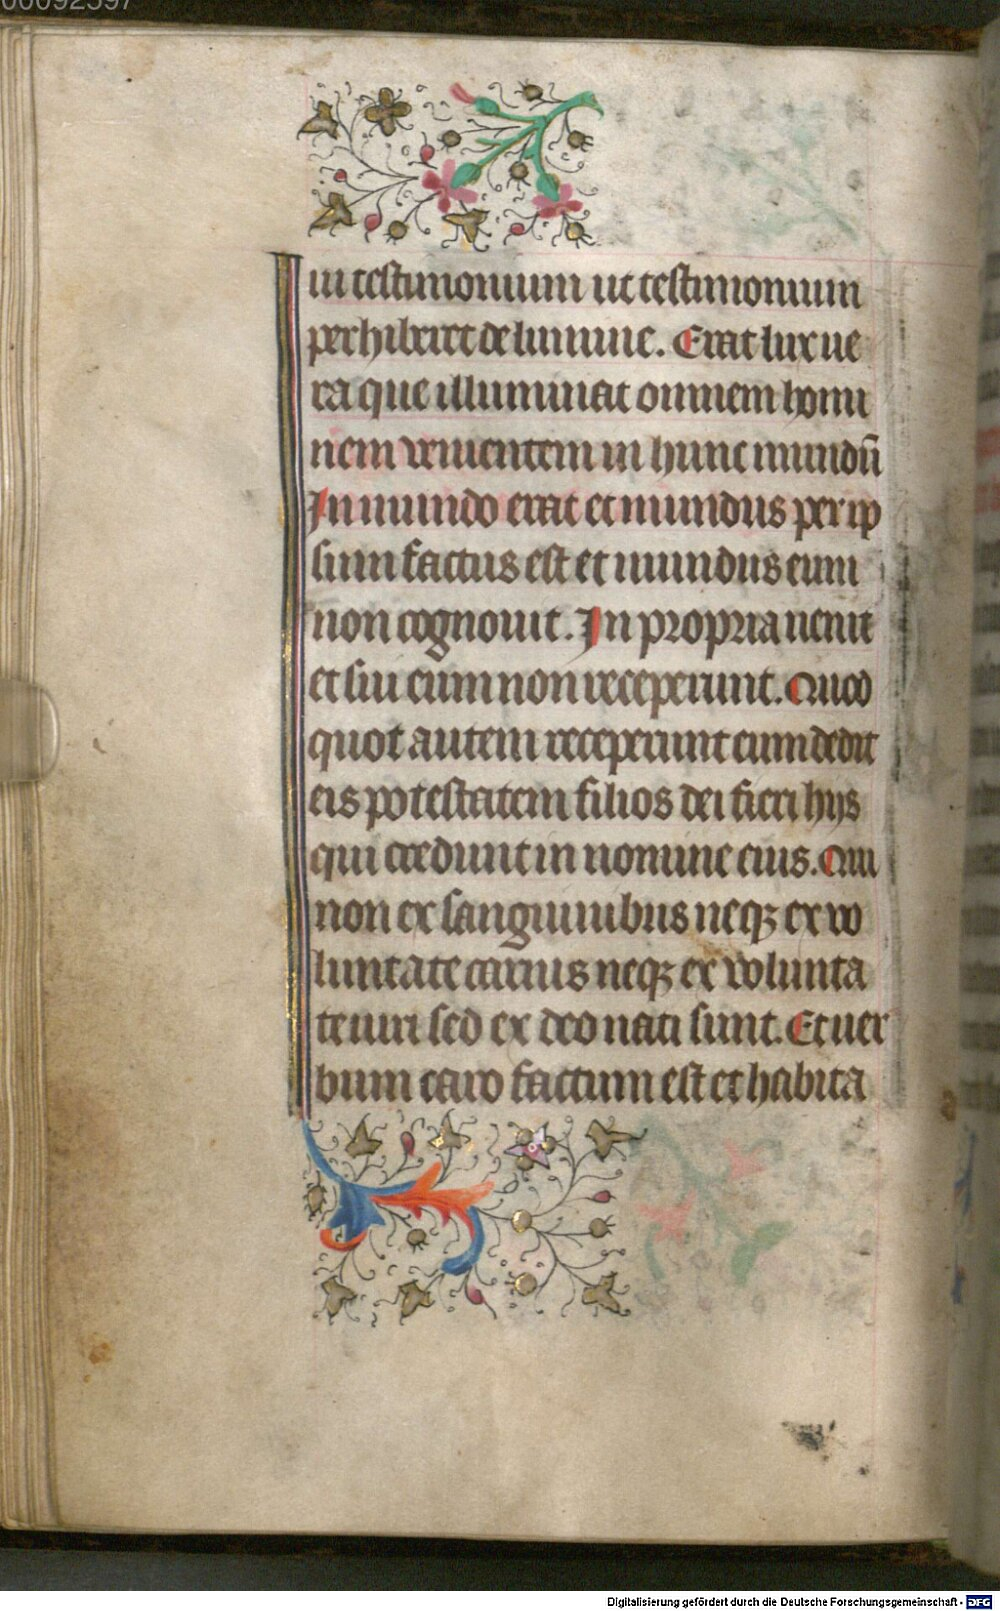 00092597
in testimonium ut testimonium
perhiberet de lumine. Erat lux ue
ra que illuminat omnem homi
nem venientem in hunc mundū
In mundo erat et mundus per ip
sum factus est et mundus eum
non cognouit. In propria uenit
et sui eum non receperunt. Quod
quot autem receperunt eum dedit
eis potestatem filios dei fieri hijs
qui credunt in nomine eius. Qui
non ex sanguinibus neqꝫ ex vo
luntate carnis neqꝫ ex volunta
te uiri sed ex deo nati sunt. Et uer
bum caro factum est et habita
Digitalisierung gefördert durch die Deutsche Forschungsgemeinschaft - DFG